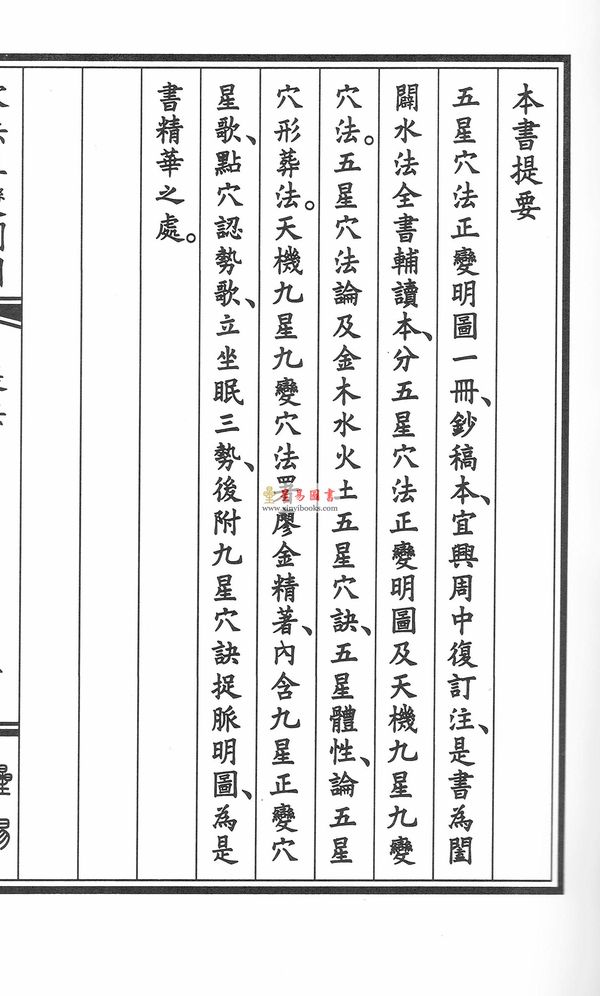 本書提要
五星穴法正變明圖一冊、鈔稿本、宜興周中復訂注、是書為闔
闢水法全書輔讀本、分五星穴法正變明圖及天機九星九變
穴法。五星穴法論及金木水火土五星穴訣、五星體性、論五星
穴形葬法。天機九星九變穴法廖金精著、內含九星正變穴
星歌、點穴認勢歌、立坐眠三勢、後附九星穴訣捉脈明圖、為是
書精華之處。
星易圖書
www.xinyibooks.com